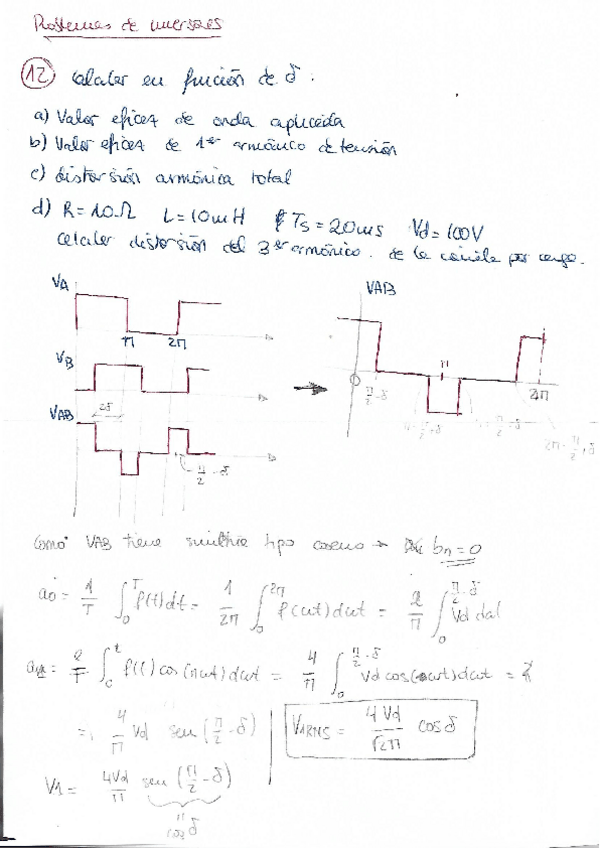 Problemas de inversores
12 Calcular en función de δ.
a) Valor eficaz de onda aplicada
b) Valor eficaz de 1er armónico de tensión
c) distorsión armónica total
d) R = 10Ω L = 10mH Ts = 20ms Vd = 100V
Calcular distorsión del 3er armónico. de la por carga.
VA
π 2π
VB
VAB
2δ
π/2 - δ
VAB
0 π/2 - δ π 2π
2π - π/2 + δ
Como VAB tiene simetría tipo coseno → bn = 0
ao = 1/T ∫₀ᵀ f(t)dt = 1/2π ∫₀^2π f(ωt)dωt = 2/π ∫₀^(π/2 - δ) Vd
= 2/T ∫ f(t) cos(nωt)dωt = 4/π ∫₀^(π/2 - δ) Vd cos(ωt)dωt =
= 4/π Vd sen (π/2 - δ)
V1RMS = 4Vd/√2π cos δ
V1 = 4Vd/π sen (π/2 - δ)
cos δ